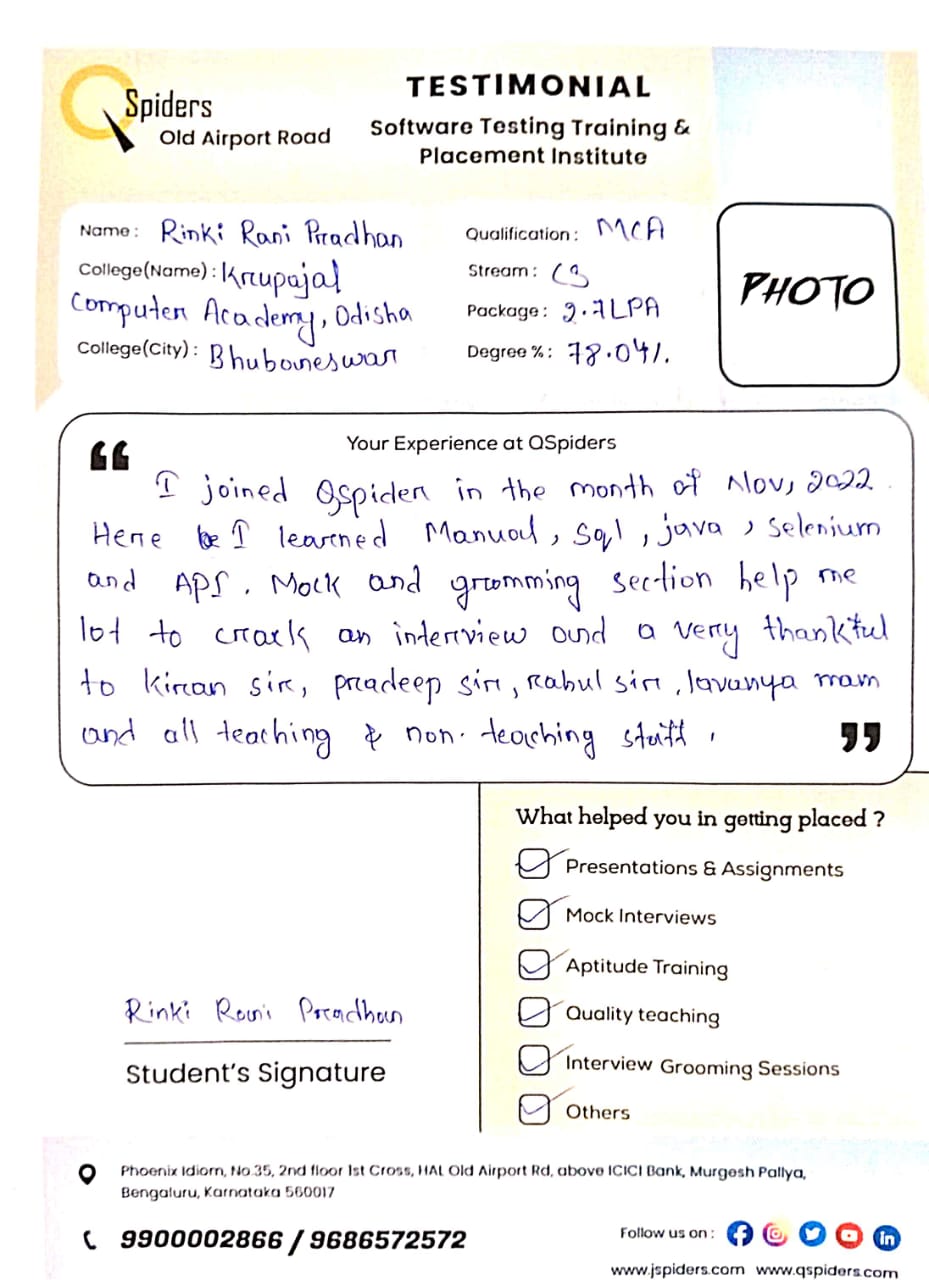 Spiders
Old Airport Road
TESTIMONIAL
Software Testing Training &
Placement Institute
Name : Rinki Rani Pradhan
College(Name) : Krupajal
Computer Academy, Odisha
College(City) : Bhubaneswar
Qualification : MCA
Stream : CS
Package : 2.7LPA
Degree % : 78.04%.
PHOTO
Your Experience at QSpiders
“ I joined Qspider in the month of Nov, 2022.
Here I learned Manual, Sql, java, Selenium
and API. Mock and gromming section help me
lot to crack an interview and a very thankful
to kiran sir, pradeep sir, rahul sir, lavanya mam
and all teaching & non-teaching staff. ”
What helped you in getting placed ?
Presentations & Assignments
Mock Interviews
Aptitude Training
Quality teaching
Interview Grooming Sessions
Others
Rinki Rani Pradhan
Student's Signature
Phoenix Idiom, No.35, 2nd floor 1st Cross, HAL Old Airport Rd, above ICICI Bank, Murgesh Pallya,
Bengaluru, Karnataka 560017
9900002866 / 9686572572
Follow us on :
www.jspiders.com www.qspiders.com